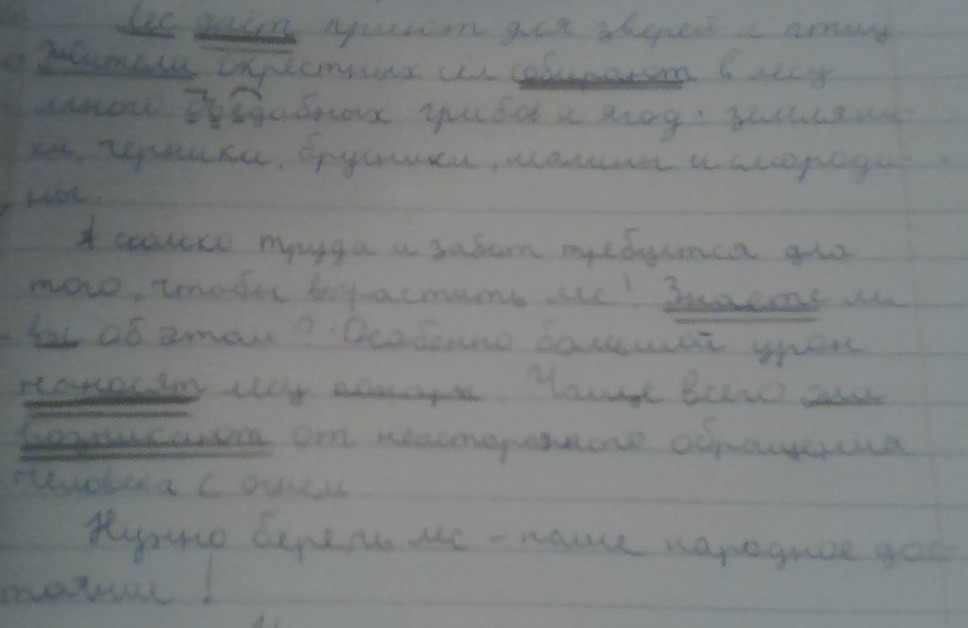 Лес даёт приют для зверей и птиц
Жители окрестных сёл собирают в лесу
много съедобных грибов и ягод: земляни-
ки, черники, брусники, малины и смороди-
ны.
А сколько труда и забот требуется для
того, чтобы вырастить лес! Знаете ли
вы об этом? Особенно большой урон
наносят лесу пожары Чаще всего они
возникают от неосторожного обращения
человека с огнем
Нужно беречь лес - наше народное дос-
тояние!